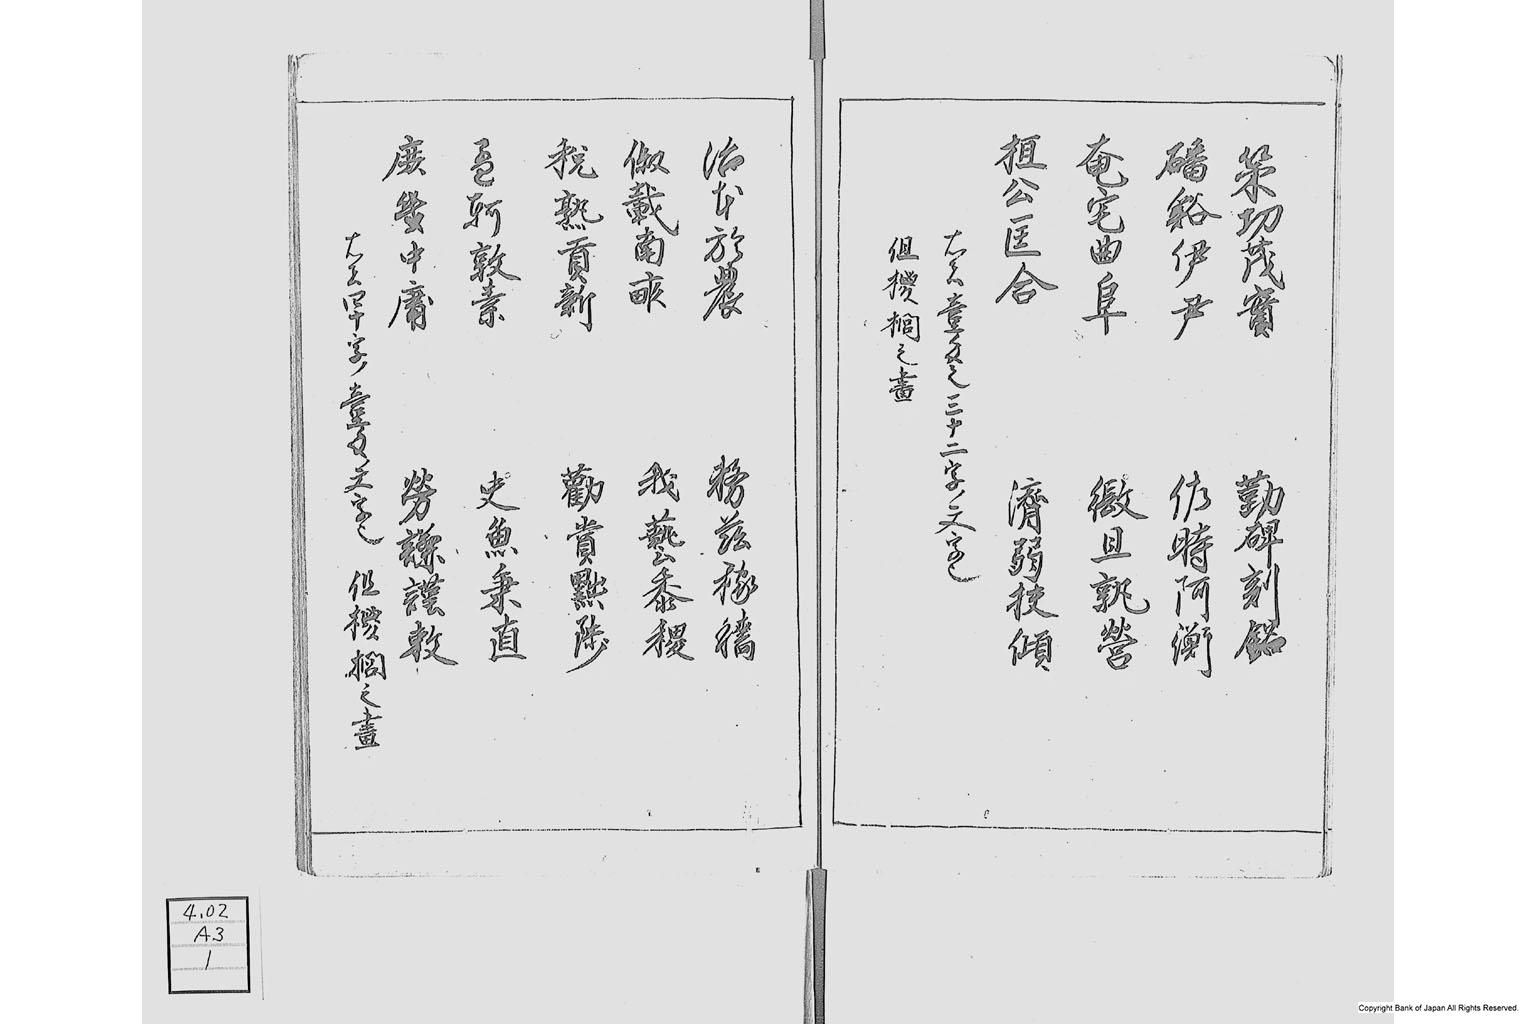 策功茂實 勤碑刻銘
磻谿伊尹 佐時阿衡
奄宅曲阜 微旦孰營
桓公匡合 濟弱扶傾
右者壹文之三十二字ノ文字也
但機㭽之畫
治本於農 務茲稼穡
俶載南畝 我藝黍稷
稅熟貢新 勸賞黜陟
孟軻敦素 史魚秉直
庶幾中庸 勞謙謹敕
右者四十字ノ壹匁ノ文字也 但機㭽之畫
4.02
A3
1
Copyright Bank of Japan All Rights Reserved.